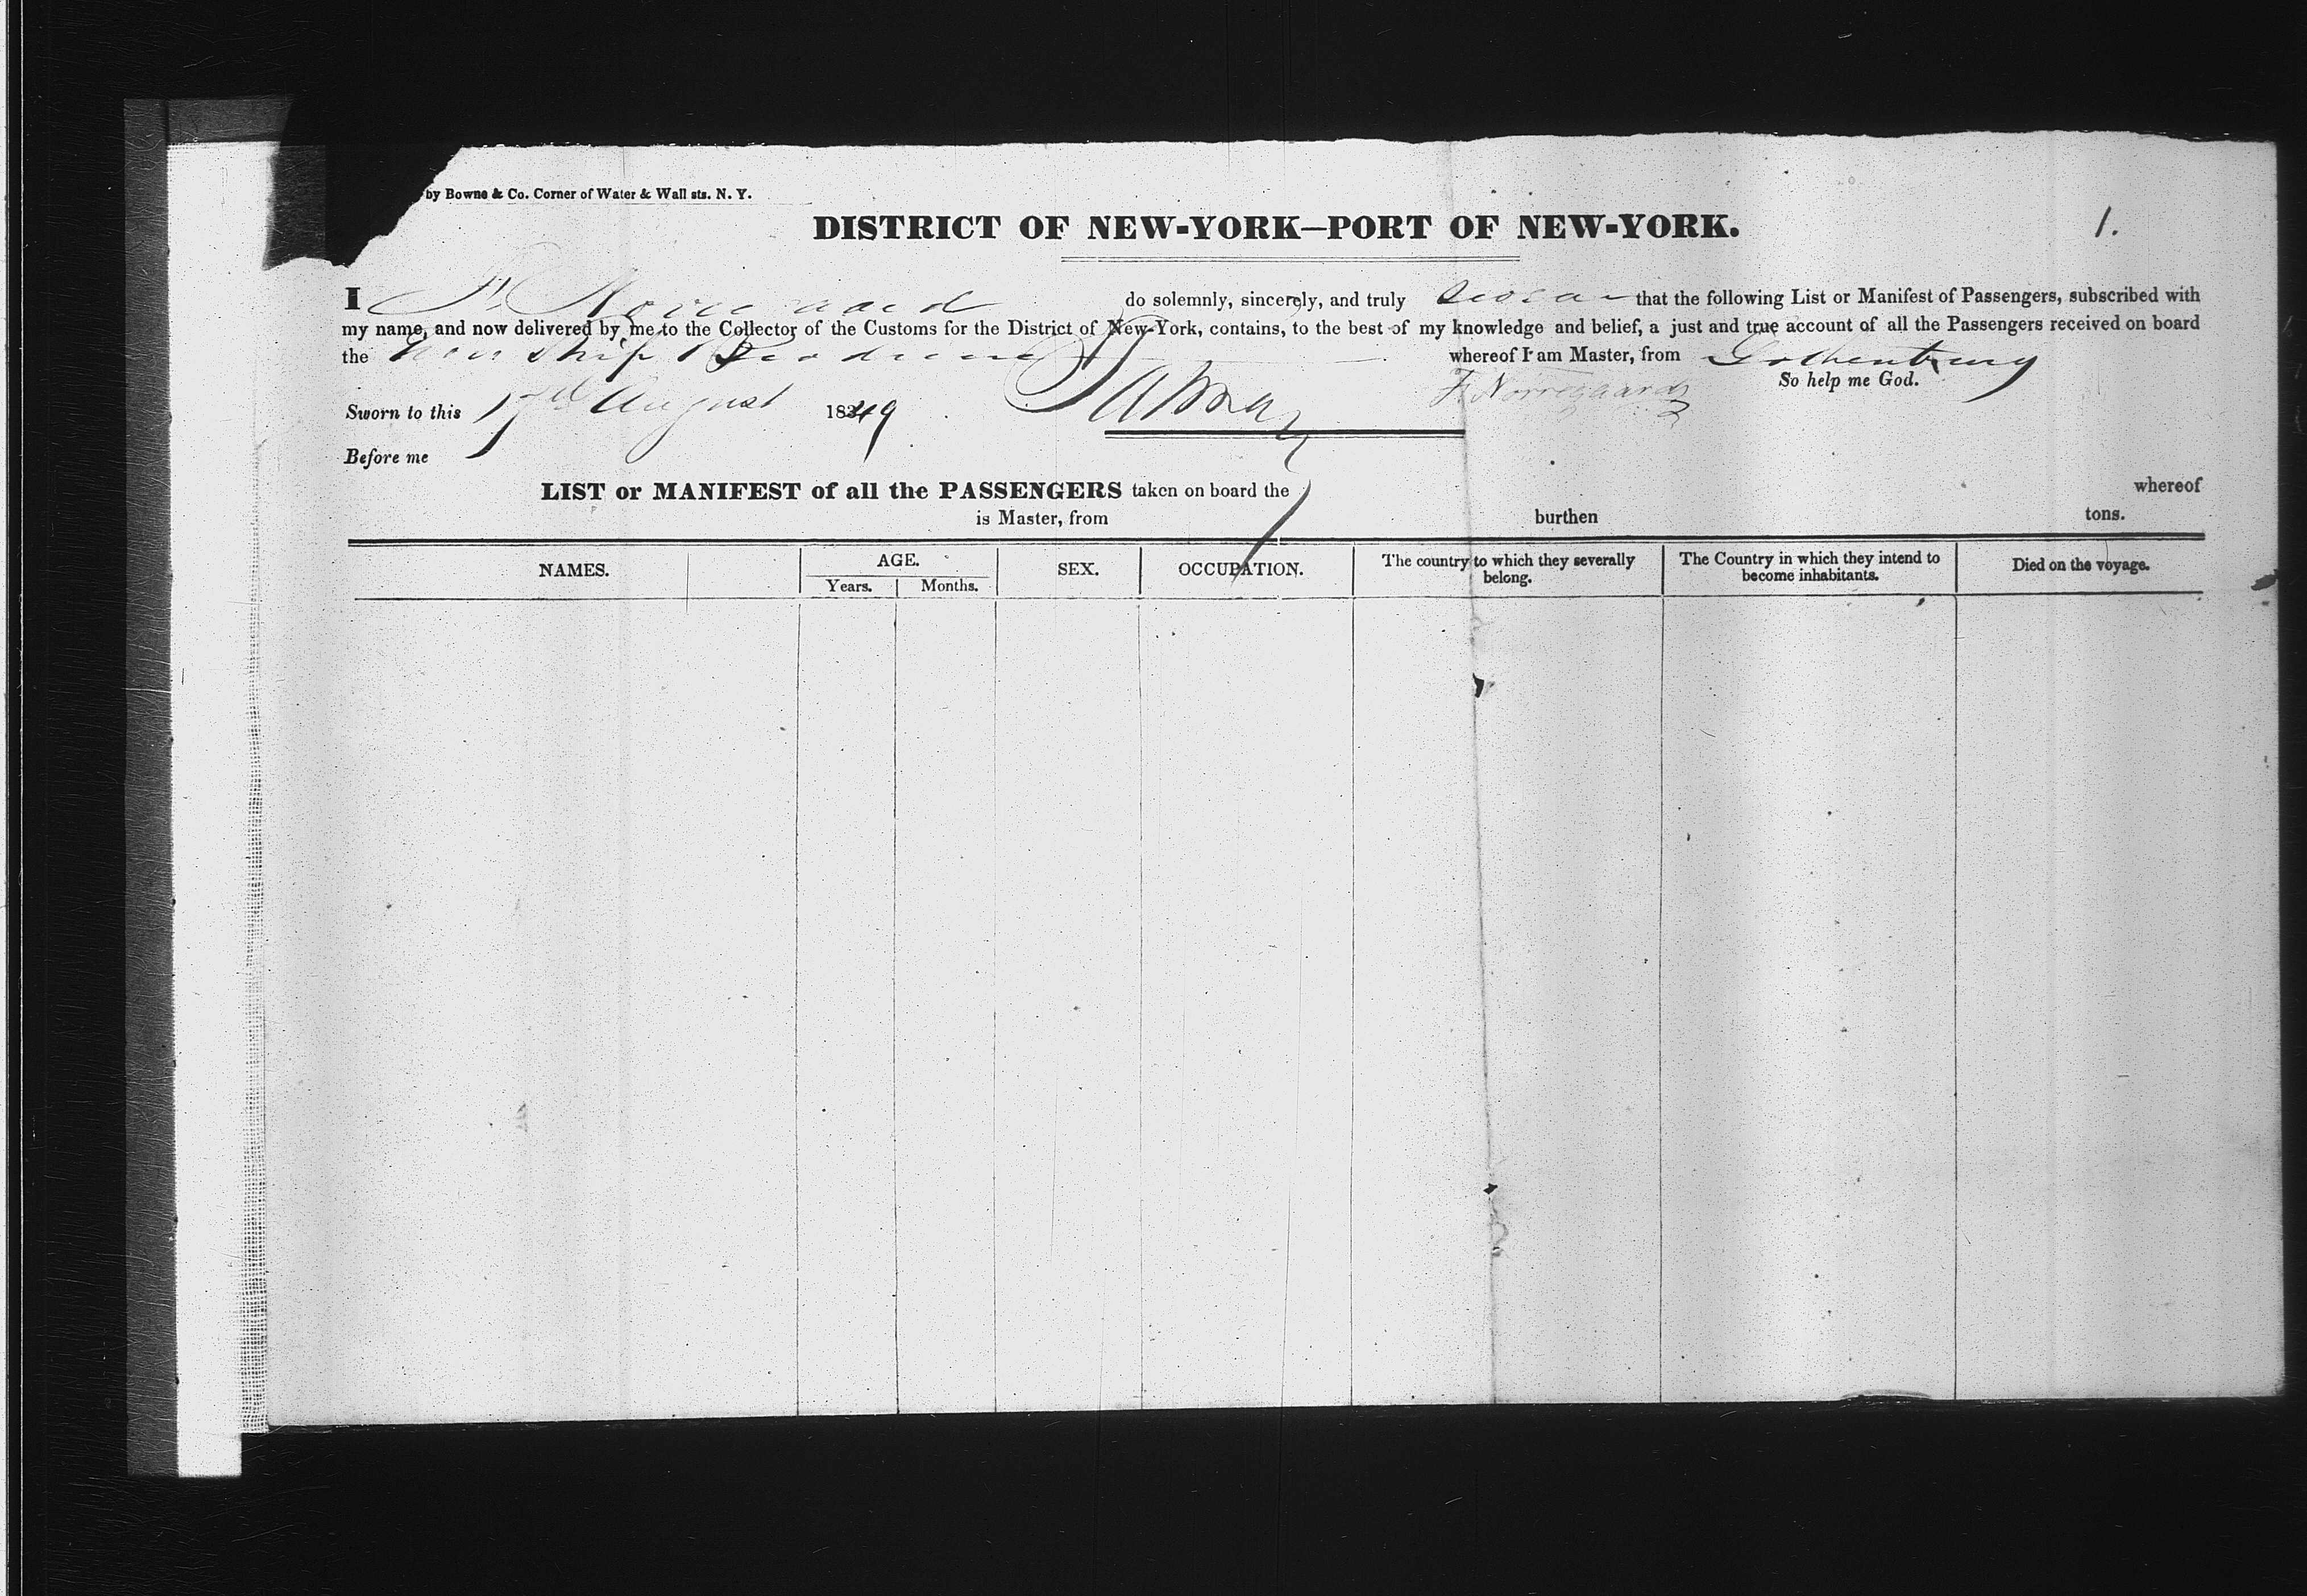 by Bowne & Co. Corner of Water & Wall sts. N. Y.
DISTRICT OF NEW-YORK—PORT OF NEW-YORK.
1.
I F. Norregaard do solemnly, sincerely, and truly swear that the following List or Manifest of Passengers, subscribed with
my name, and now delivered by me to the Collector of the Customs for the District of New-York, contains, to the best of my knowledge and belief, a just and true account of all the Passengers received on board
the Ship whereof I am Master, from Gothenburg
So help me God.
F. Norregaard
Sworn to this 17th August 1849
Before me
LIST or MANIFEST of all the PASSENGERS taken on board the whereof
is Master, from burthen tons.
NAMES. AGE. SEX. OCCUPATION. The country to which they severally belong. The Country in which they intend to become inhabitants. Died on the voyage.
Years. Months.